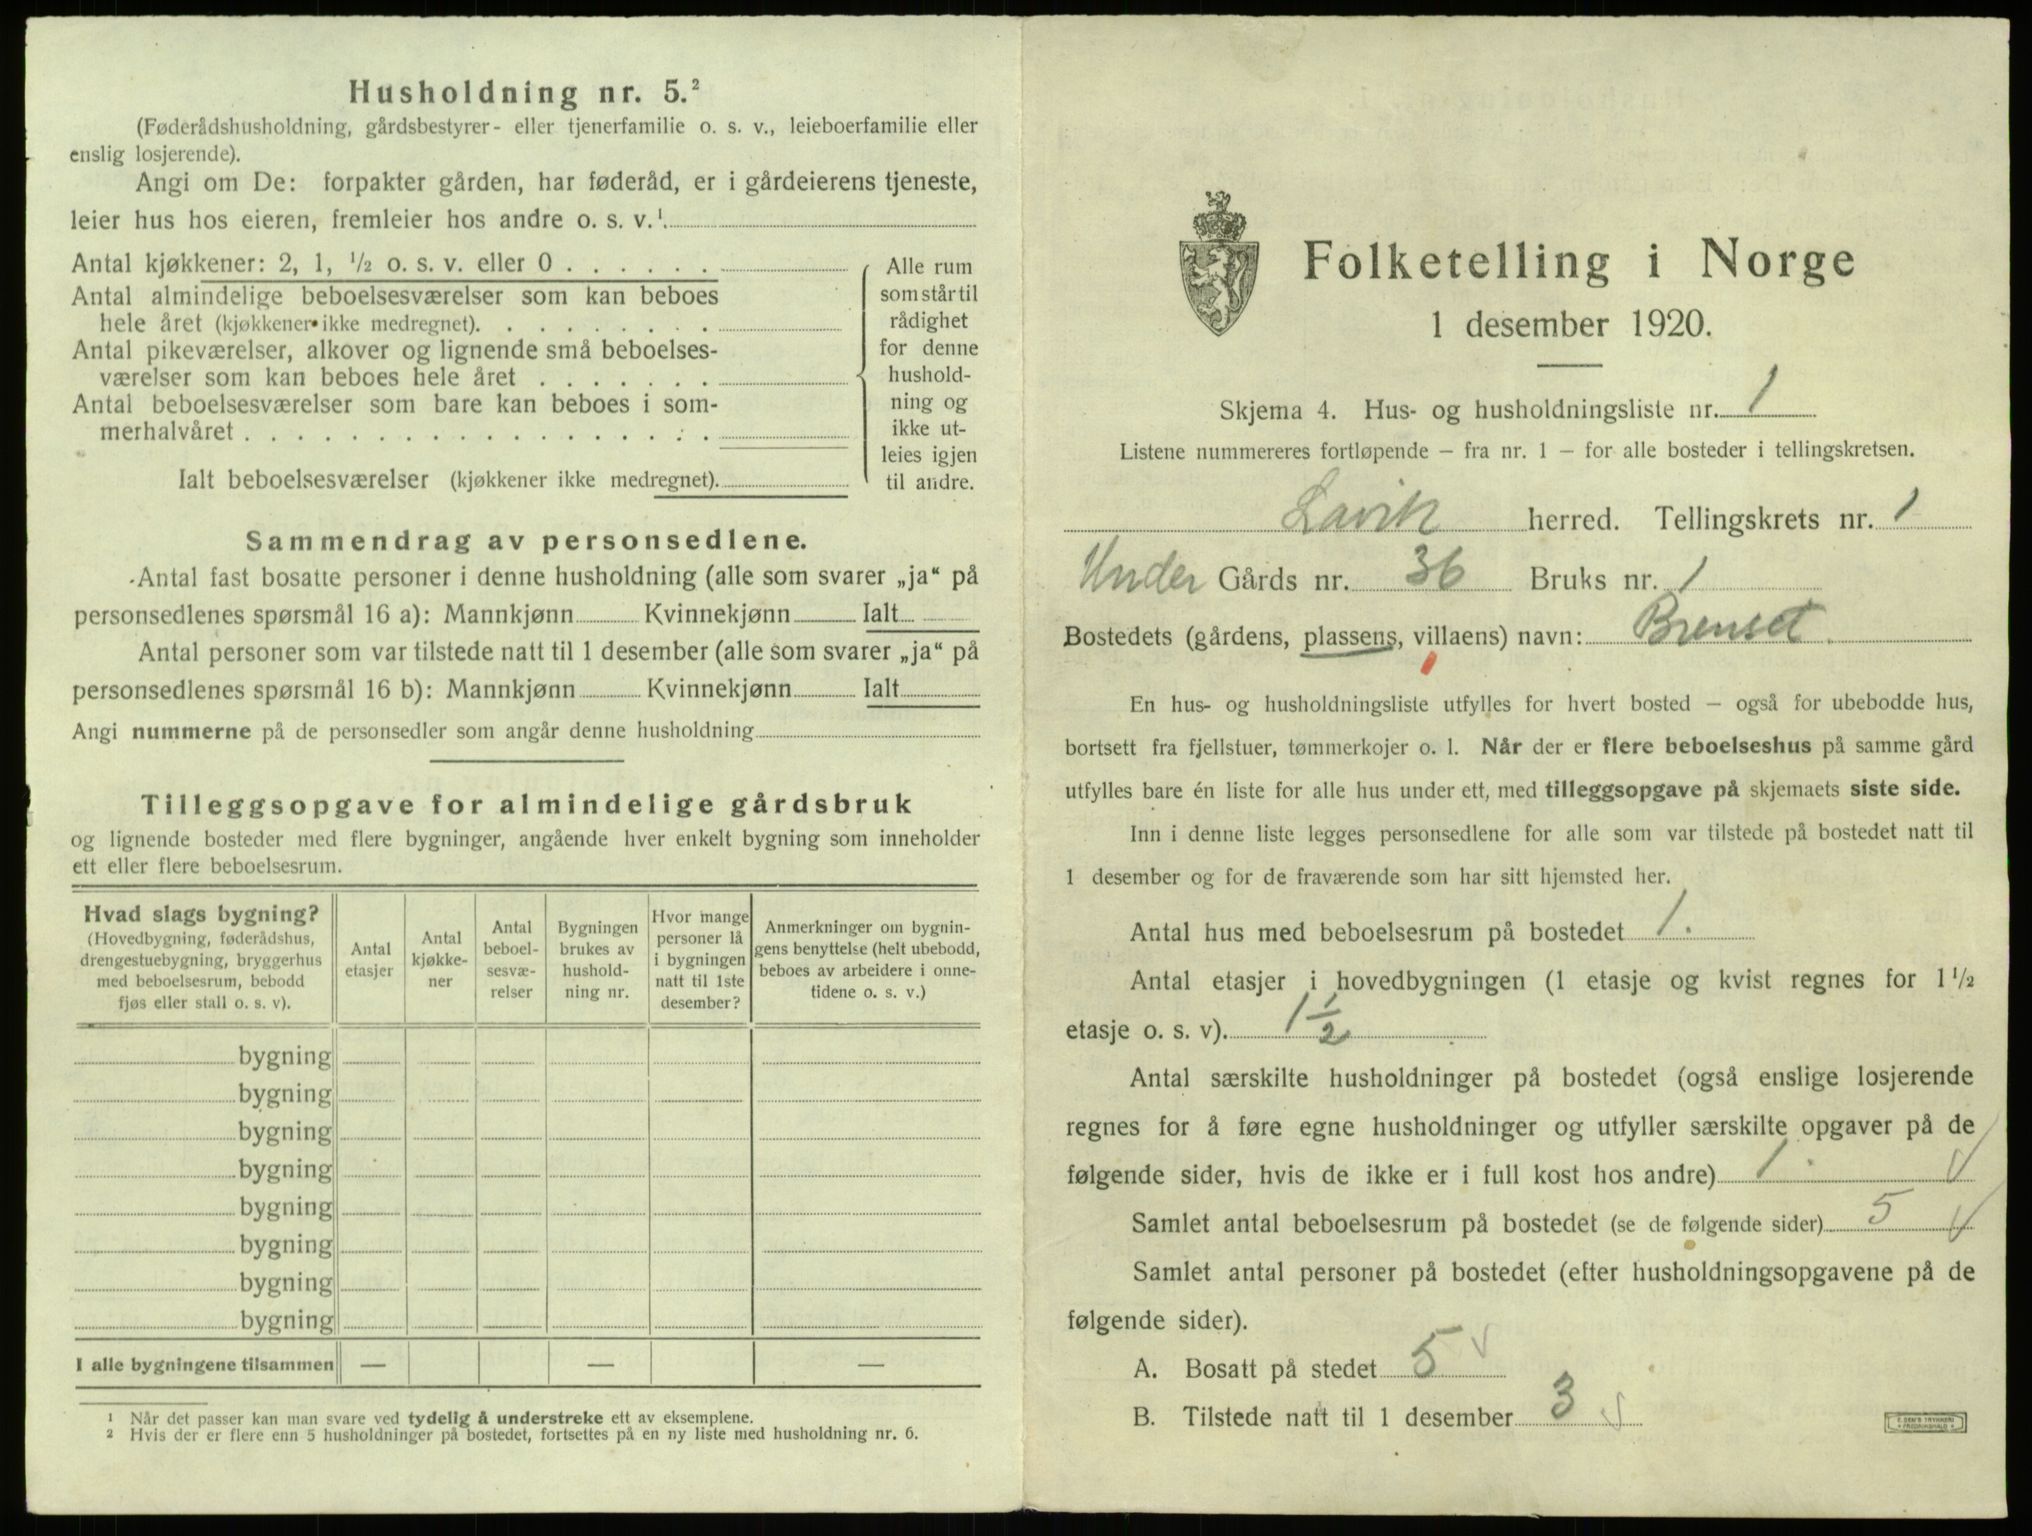 Husholdning nr. 5.²
(Føderådshusholdning, gårdsbestyrer- eller tjenerfamilie o. s. v., leieboerfamilie eller
enslig losjerende).
Angi om De: forpakter gården, har føderåd, er i gårdeierens tjeneste,
leier hus hos eieren, fremleier hos andre o. s. v.¹.
Antal kjøkkener: 2, 1, ½ o. s. v. eller 0 . . . . . .
Antal almindelige beboelsesværelser som kan beboes
hele året (kjøkkener ikke medregnet). . . . . . . . .
Antal pikeværelser, alkover og lignende små beboelses-
værelser som kan beboes hele året . . . . . . .
Antal beboelsesværelser som bare kan beboes i som-
merhalvåret . . . . . . . . . . . . . . . . . .
Ialt beboelsesværelser (kjøkkener ikke medregnet).
Alle rum
som står til
rådighet
for denne
hushold-
ning og
ikke ut-
leies igjen
til andre.
Sammendrag av personsedlene.
Antal fast bosatte personer i denne husholdning (alle som svarer „ja“ på
personsedlenes spørsmål 16 a): Mannkjønn Kvinnekjønn Ialt
Antal personer som var tilstede natt til 1 desember (alle som svarer „ja“ på
personsedlenes spørsmål 16 b): Mannkjønn Kvinnekjønn Ialt
Angi nummerne på de personsedler som angår denne husholdning
Tilleggsopgave for almindelige gårdsbruk
og lignende bosteder med flere bygninger, angående hver enkelt bygning som inneholder
ett eller flere beboelsesrum.
Hvad slags bygning?
(Hovedbygning, føderådshus,
drengestuebygning, bryggerhus
med beboelsesrum, bebodd
fjøs eller stall o. s. v).
Antal
etasjer
Antal
kjøkke-
ner
Antal
beboel-
sesvæ-
relser
Bygningen
brukes av
hushold-
ning nr.
Hvor mange
personer lå
i bygningen
natt til 1ste
desember?
Anmerkninger om bygnin-
gens benyttelse (helt ubebodd,
beboes av arbeidere i onne-
tidene o. s. v.)
bygning
bygning
bygning
bygning
bygning
bygning
bygning
bygning
I alle bygningene tilsammen — — —
¹ Når det passer kan man svare ved tydelig å understreke ett av eksemplene.
² Hvis der er flere enn 5 husholdninger på bostedet, fortsettes på en ny liste med husholdning nr. 6.
Folketelling i Norge
1 desember 1920.
Skjema 4. Hus- og husholdningsliste nr. 1
Listene nummereres fortløpende – fra nr. 1 – for alle bosteder i tellingskretsen.
Lavik herred. Tellingskrets nr. 1
Under Gårds nr. 36 Bruks nr. 1
Bostedets (gårdens, plassens, villaens) navn: Brenset
En hus- og husholdningsliste utfylles for hvert bosted – også for ubebodde hus,
bortsett fra fjellstuer, tømmerkojer o. l. Når der er flere beboelseshus på samme gård
utfylles bare én liste for alle hus under ett, med tilleggsopgave på skjemaets siste side.
Inn i denne liste legges personsedlene for alle som var tilstede på bostedet natt til
1 desember og for de fraværende som har sitt hjemsted her.
Antal hus med beboelsesrum på bostedet 1.
Antal etasjer i hovedbygningen (1 etasje og kvist regnes for 1 ½
etasje o. s. v). 1 ½
Antal særskilte husholdninger på bostedet (også enslige losjerende
regnes for å føre egne husholdninger og utfyller særskilte opgaver på de
følgende sider, hvis de ikke er i full kost hos andre) 1. √
Samlet antal beboelsesrum på bostedet (se de følgende sider) 5 √
Samlet antal personer på bostedet (efter husholdningsopgavene på de
følgende sider).
A. Bosatt på stedet 5 √
B. Tilstede natt til 1 desember 3 √
E. SEM'S TRYKKERI
FREDRIKSHALD